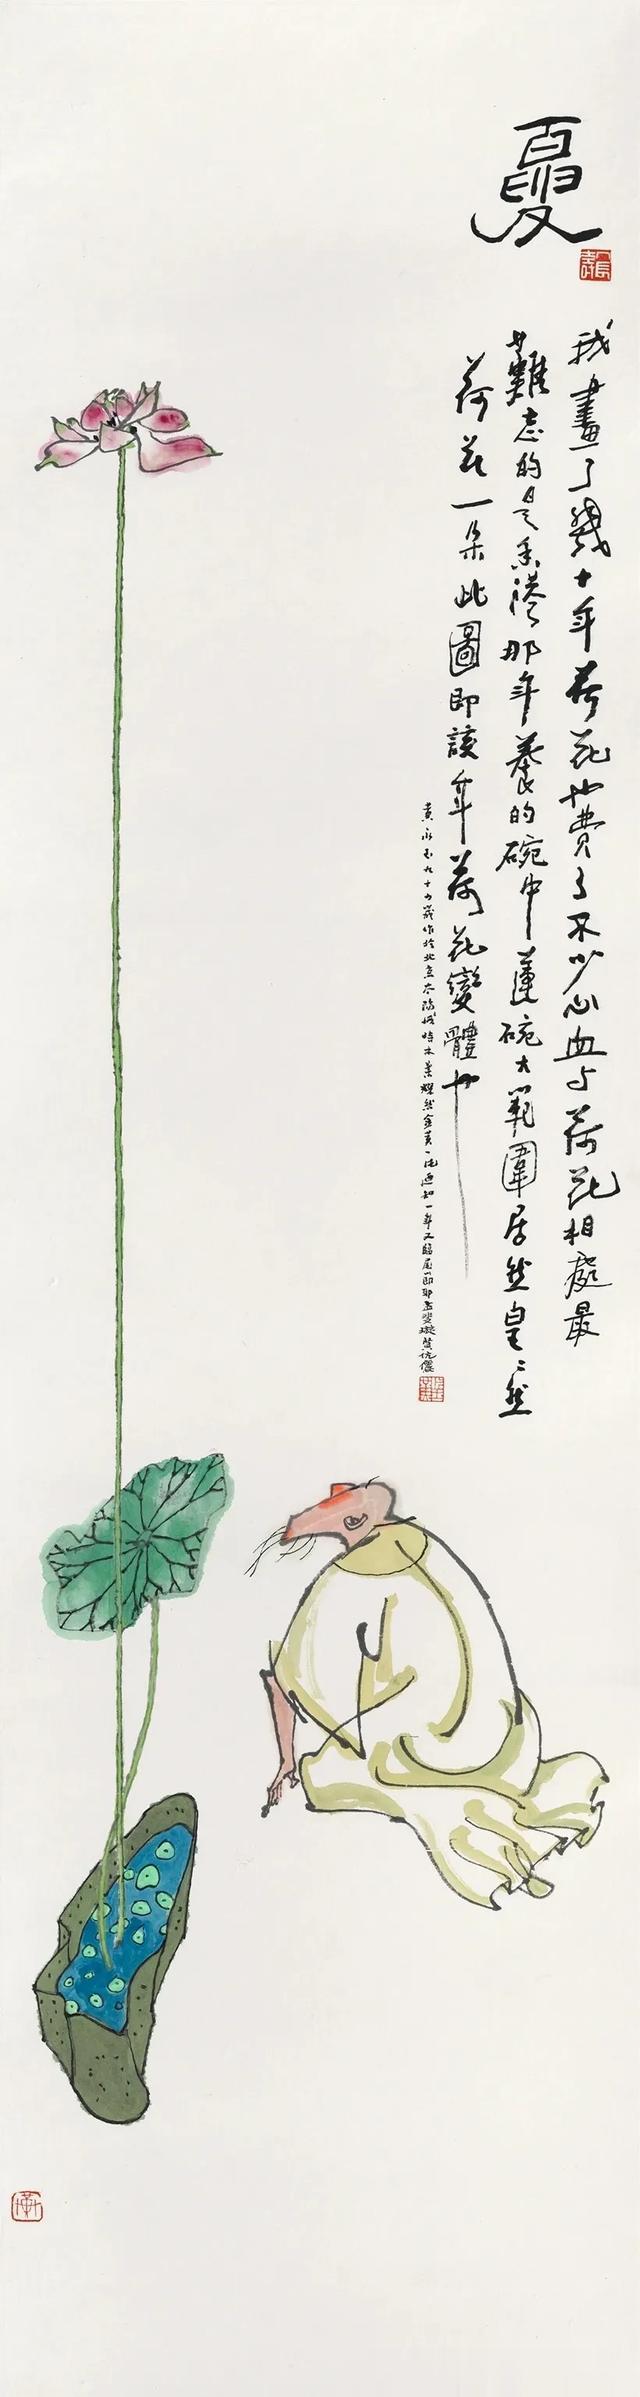 夏
我畫了幾十年荷花也費了不少心血与荷花相處最
難忘的是香港那年養的碗中蓮碗大範圍居然皇〻然
荷花一朵此圖即該年荷花變體也
黄永玉九十歲作於北京太陽城時木葉燦然金黄一片通知一年又臨尾節耶